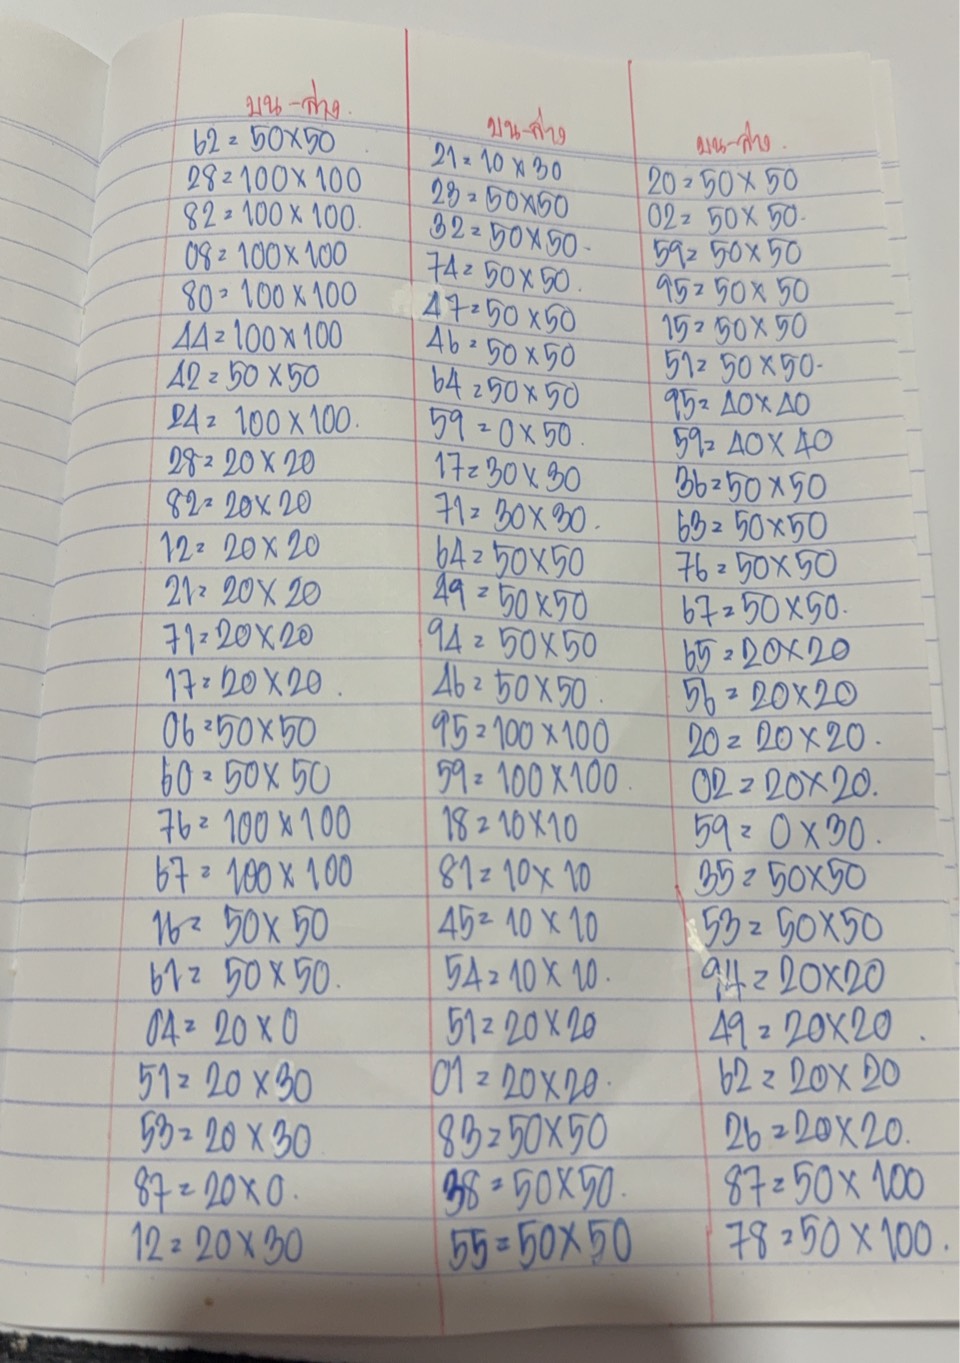 บน-ล่าง.
62=50×50
28=100×100
82=100×100.
08=100×100
80=100×100
44=100×100
42=50×50
24=100×100.
28=20×20
82=20×20
12=20×20
21=20×20
71=20×20
17=20×20.
06=50×50
60=50×50
76=100×100
67=100×100
16=50×50
61=50×50.
04=20×0
51=20×30
53=20×30
87=20×0.
12=20×30
บน-ล่าง
21=10×30
23=50×50
32=50×50.
74=50×50.
47=50×50
46=50×50
64=50×50
59=0×50.
17=30×30
71=30×30.
64=50×50
49=50×50
94=50×50
46=50×50.
95=100×100
59=100×100.
18=10×10
81=10×10
45=10×10
54=10×10.
51=20×20
01=20×20.
83=50×50
38=50×50.
55=50×50
บน-ล่าง.
20=50×50
02=50×50.
59=50×50
95=50×50
15=50×50
51=50×50.
95=40×40
59=40×40
36=50×50
63=50×50
76=50×50
67=50×50.
65=20×20
56=20×20
20=20×20.
02=20×20.
59=0×30.
35=50×50
53=50×50
94=20×20
49=20×20.
62=20×20
26=20×20.
87=50×100
78=50×100.